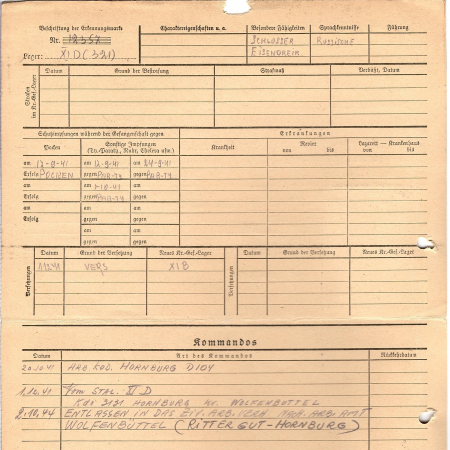 Beschriftung der Erkennungsmarke
Charaktereigenschaften u. a.
Besondere Fähigkeiten
Sprachkenntnisse
Führung
Nr.
Lager: XI D (321)
SCHLOSSER
EISENDREH.
RUSSISCHE
Strafen im Kr.-Gef.-Lager
Datum
Grund der Bestrafung
Strafmaß
Verbüßt, Datum
Schutzimpfungen während der Gefangenschaft gegen
Erkrankungen
Pocken
Sonstige Impfungen
(Ty.-Paraty., Ruhr, Cholera usw.)
Krankheit
Revier
von bis
Lazarett - Krankenhaus
von bis
am am 12-9-41 am 24-9-41
Erfolg POCKEN gegen gegen
am am 1-10-41 am
Erfolg gegen gegen
am am am
Erfolg gegen gegen
am am
gegen gegen
Versetzungen
Datum
Grund der Versetzung
Neues Kr.-Gef.-Lager
Datum
Grund der Versetzung
Neues Kr.-Gef.-Lager
VERS XI B
Kommandos
Datum
Art des Kommandos
Rückkehrdatum
20.10.41 ARB KDO. HORNBURG D104
1.10.41 Vom STAL. XI D
KDO 3121 HORNBURG KR. WOLFENBÜTTEL
2.10.44 ENTLASSEN IN DAS ZIV. ARB. VERH. NACH ARB. AMT
WOLFENBÜTTEL (RITTERGUT-HORNBURG)